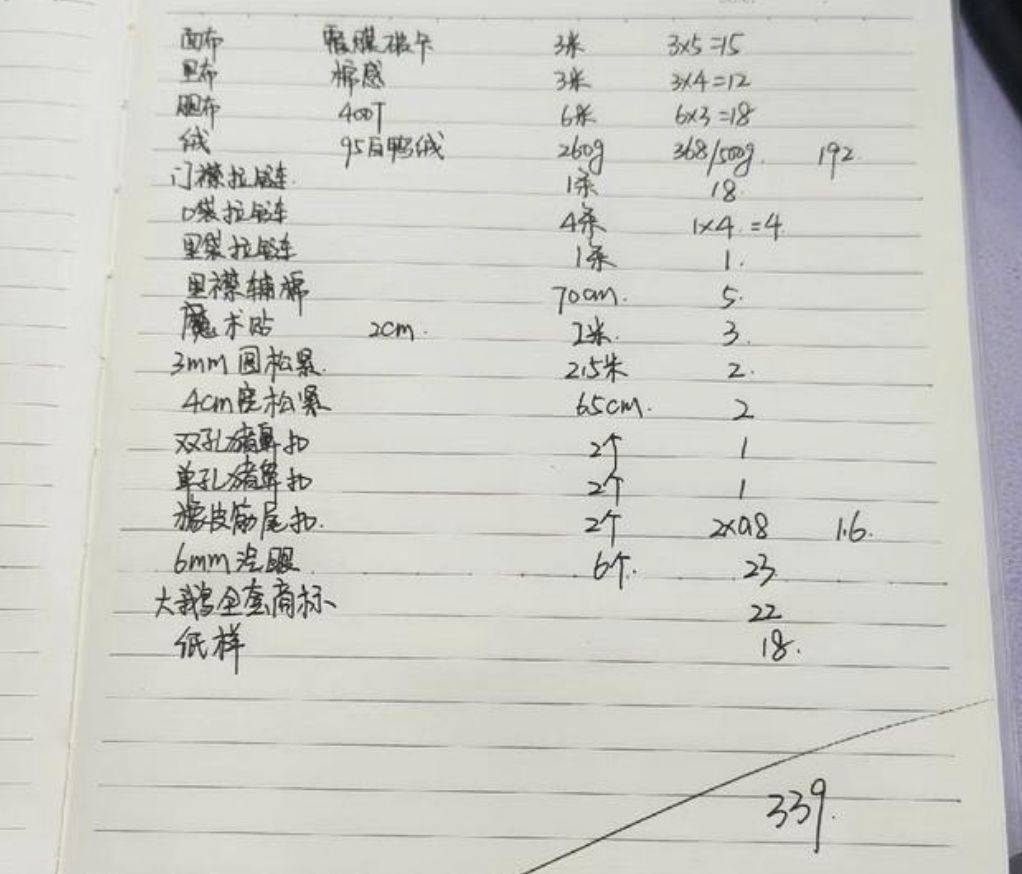 面布 覆膜磁卡 3米 3×5=15
里布 棉感 3米 3×4=12
胆布 400T 6米 6×3=18
绒 95白鸭绒 260g 368/500g. 192
门襟拉链. 1条 18
口袋拉链 4条 1×4.=4
里袋拉链 1条 1.
里襟辅棉 70cm. 5.
魔术贴 2cm. 2米. 3.
3mm圆松紧. 2.5米 2.
4cm宽松紧 65cm. 2
双孔猪鼻扣 2个 1
单孔猪鼻扣 2个 1
橡皮筋尾扣. 2个 2×0.8 1.6.
6mm汽眼 6个. 23
大鹅全套商标 22
纸样 18.
339.